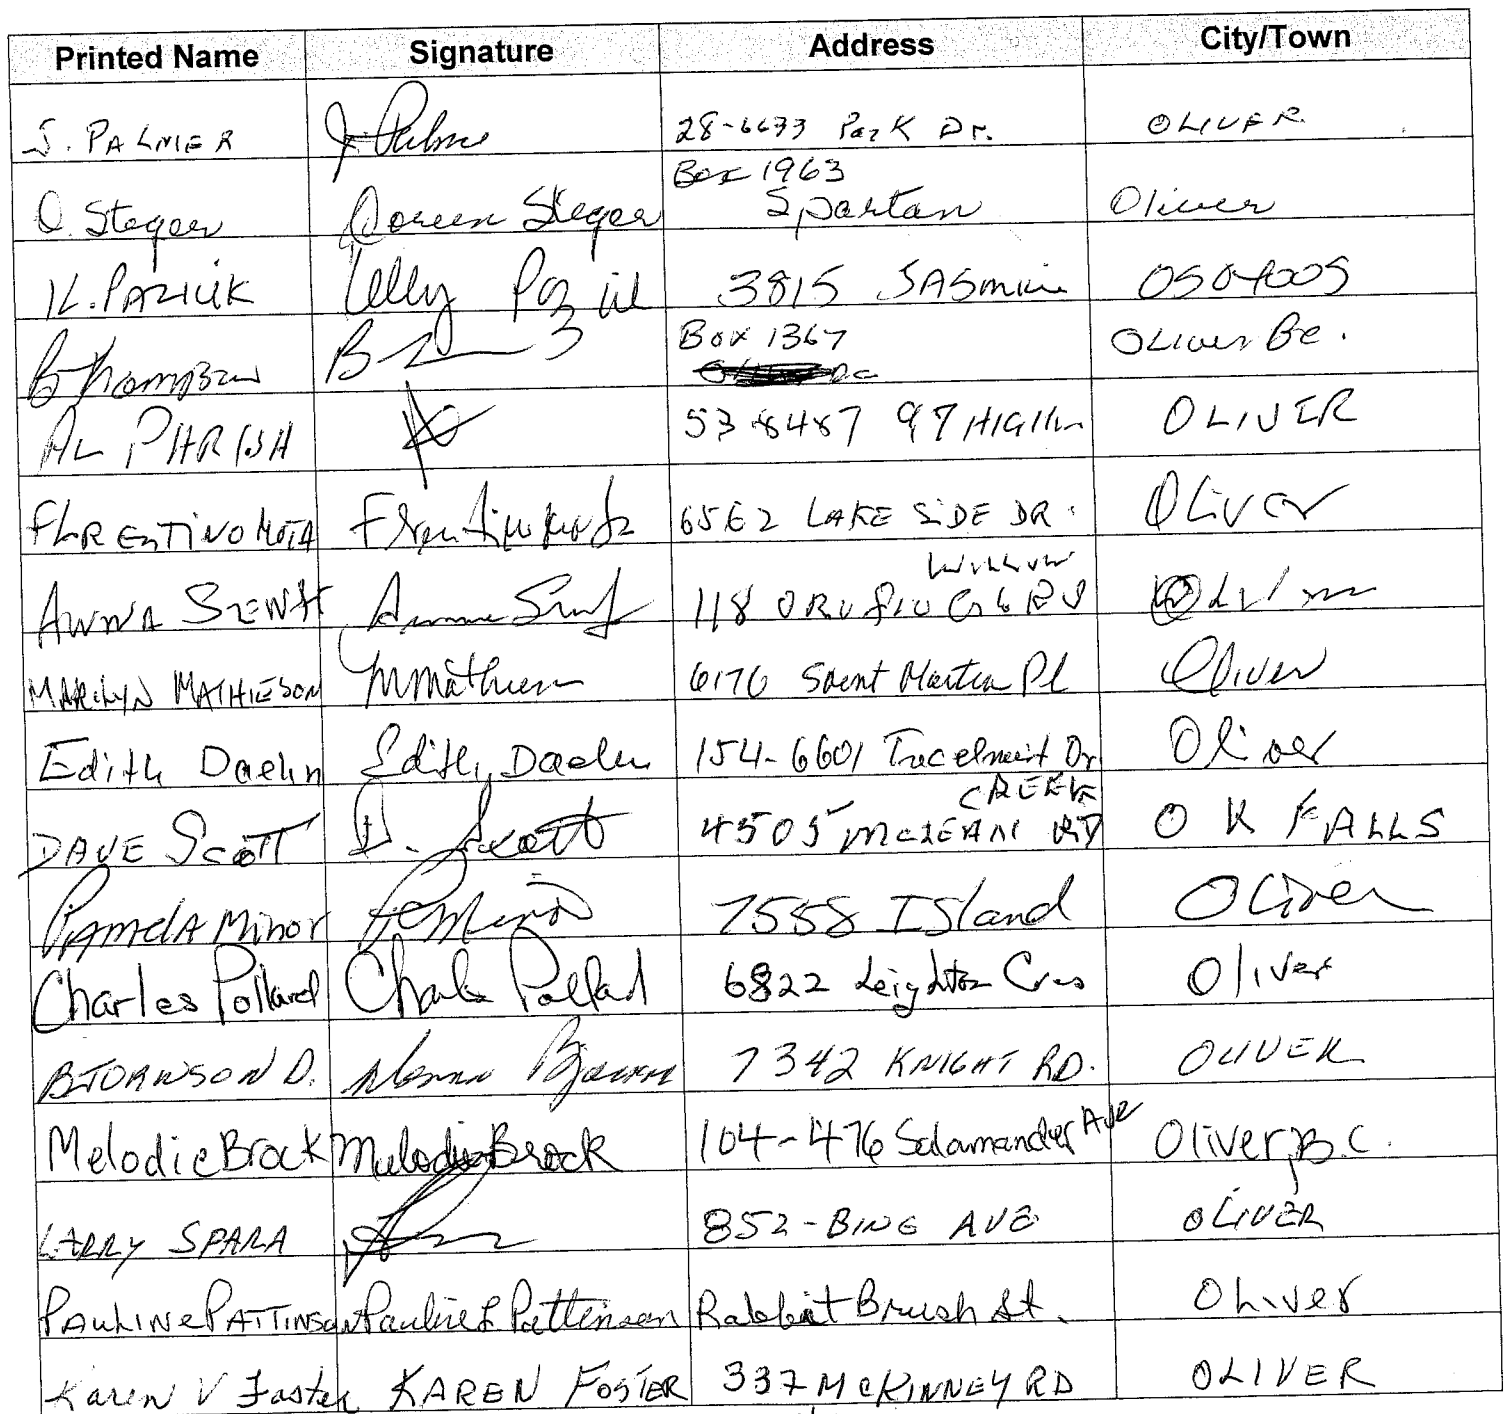 Printed Name Signature Address City/Town
J. PALMER J. Palmer 28-6673 Park Dr. OLIVER
Box 1963
D. Steger Doreen Steger Spartan Oliver
K. PAZIUK Kelly 3815 JASmine OSOYOOS
B Thompson Box 1367 OLIVER BC.
AL PARISH 53-8487 97 HIGHW OLIVER
FLRENTINO MOTA 6562 LAKE SIDE DR. OLiver
WILLOW
ANNA 118 Oliver
MARILYN MATHIESON MMathieson 6176 Saint Martin Pl Oliver
Edith Daehn Edith Daehn 154-6601 Tucelnuit Dr Oliver
CREEK
DAVE SCOTT D. Scott 4505 McLEAN RD O K FALLS
PAMELA Minor P Minor 7558 ISland OLiver
Charles Pollard Charles Pollard 6822 Leighton Cres Oliver
BJORNSON D. 7342 KNIGHT RD. OLIVER
Melodie Brock Melodie Brock 104-476 Salamander Ave Oliver, B.C.
LARRY SPARA 852-BING AVE OLIVER
PAULINE PATTINSON Pauline L Pattinson Rabbit Brush St. Oliver
Karen V Foster KAREN FOSTER 337 McKINNEY RD OLIVER